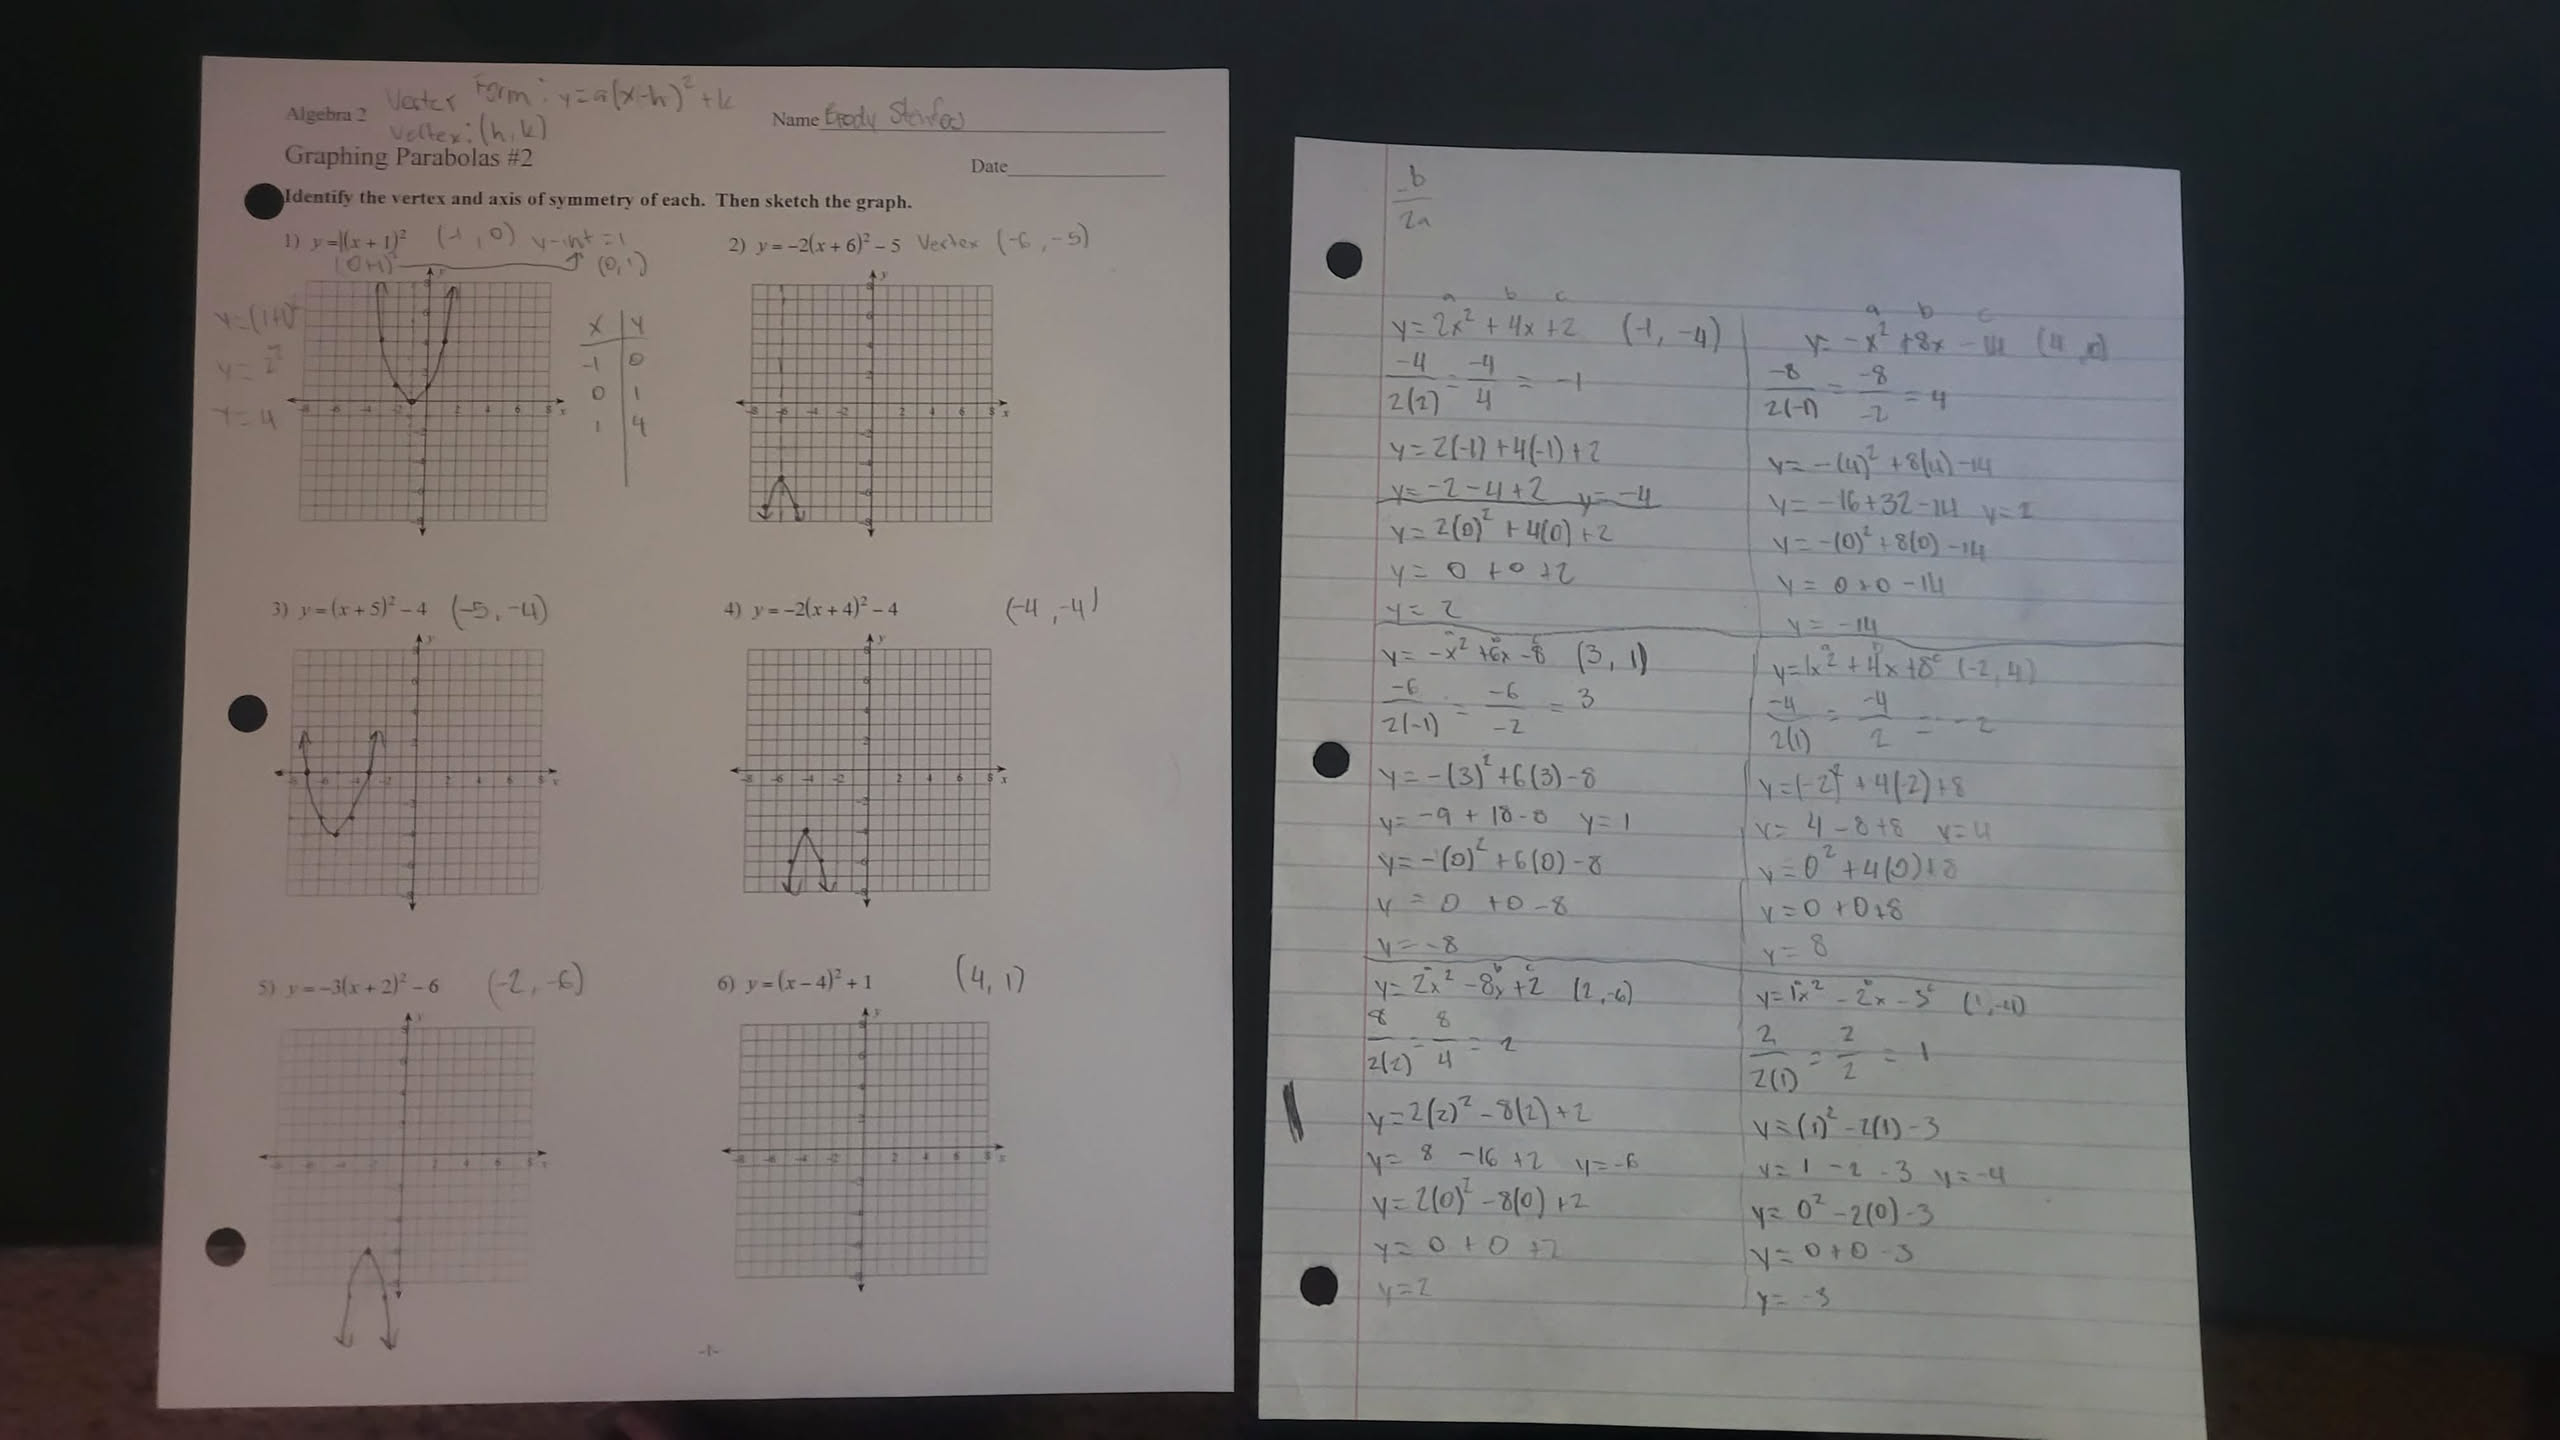 Vertex Form: y=a(x-h)² + k
Algebra 2
Vertex: (h, k)
Name
Graphing Parabolas #2
Date
Identify the vertex and axis of symmetry of each. Then sketch the graph.
1) y = 1(x + 1)² (-1, 0) y-int = 1
(0+1)² (0,1)
y=(1+1)²
y= 2²
y= 4
x | y
-1 | 0
0 | 1
1 | 4
2) y = −2(x + 6)² − 5 Vertex (-6, -5)
3) y = (x + 5)² − 4 (-5, -4)
4) y = −2(x + 4)² − 4 (-4, -4)
5) y = −3(x + 2)² − 6 (-2, -6)
6) y = (x − 4)² + 1 (4, 1)
-1-
-b
2a
a b c
y= 2x² + 4x +2 (-1, -4)
-4/2(2) = -4/4 = -1
y= 2(-1) +4(-1) +2
y= -2 -4 +2 y= -4
y= 2(0)² + 4(0) +2
y= 0 +0 +2
y= 2
y= -x² +6x -8 (3, 1)
-6/2(-1) = -6/-2 = 3
y= -(3)² +6(3) -8
y= -9 + 18 -8 y= 1
y= -(0)² +6(0) -8
y= 0 +0 -8
y= -8
y= 2x² -8x +2 (2, -6)
8/2(2) = 8/4 = 2
y= 2(2)² -8(2) +2
y= 8 -16 +2 y= -6
y= 2(0)² -8(0) +2
y= 0 + 0 +2
y= 2
a b c
y= -x² +8x -14
-8/2(-1) = -8/-2 = 4
y= -(4)² +8(4) -14
y= -16 +32 -14 y= 2
y= -(0)² +8(0) -14
y= 0 +0 -14
y= -14
y= 1x² + 4x +8 (-2, 4)
-4/2(1) = -4/2 = -2
y= (-2)² + 4(-2) +8
y= 4 -8 +8 y= 4
y= 0² +4(0) +8
y= 0 +0 +8
y= 8
y= 1x² -2x -3 (1, -4)
2/2(1) = 2/2 = 1
y= (1)² -2(1) -3
y= 1 -2 -3 y= -4
y= 0² -2(0) -3
y= 0 +0 -3
y= -3